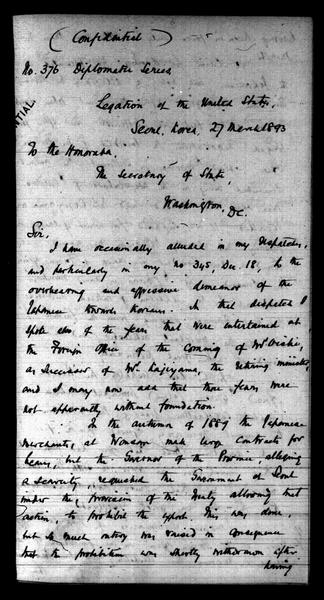 (Confidential)
No. 376 Diplomatic Series
Legation of the United States,
Seoul, Korea, 27 March 1893
To the Honorable,
The Secretary of State,
Washington,
D.C.
Sir,
I have occasionally alluded in my dispatches,
and particularly in my no 345, Dec. 18, to the
overbearing and oppressive demeanor of the
Japanese towards Koreans. In that dispatch I
spoke also of the fears that were entertained at
the Foreign Office of the Coming of Mr Oishi,
as Successor of Mr. Kajiyama, the retiring minister
and I may now add that those fears were
not apparently without foundation.
In the autumn of 1889 the Japanese
merchants, at Wonsan made large Contracts for
beans, but the Governor of the Province, alleging
a scarcity, requested the Government at Seoul
under the provision of the treaty allowing that
action, to prohibit the export. This was done,
but so much outcry was raised in Consequence
that the prohibition was shortly withdrawn after
having